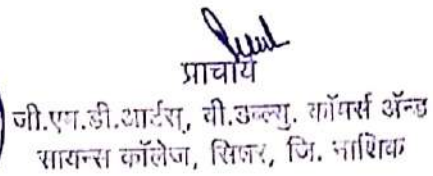 प्राचार्य
जी.एम.डी.आर्टस्, बी.डब्ल्यु. कॉमर्स ॲन्ड
सायन्स कॉलेज, सिन्नर, जि. नाशिक